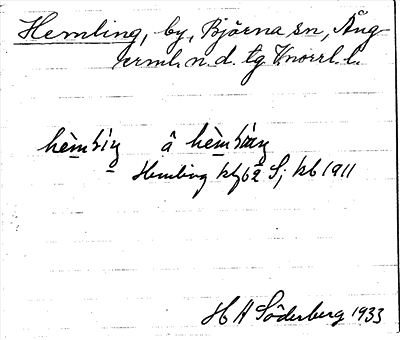 Hemling, by, Björna sn, Ång-
erml. n. d. tg Norrl. l.
hèmlíŋ å hèmlíŋ
Hemling kb 62 S; kb 1911
H A Söderberg 1933